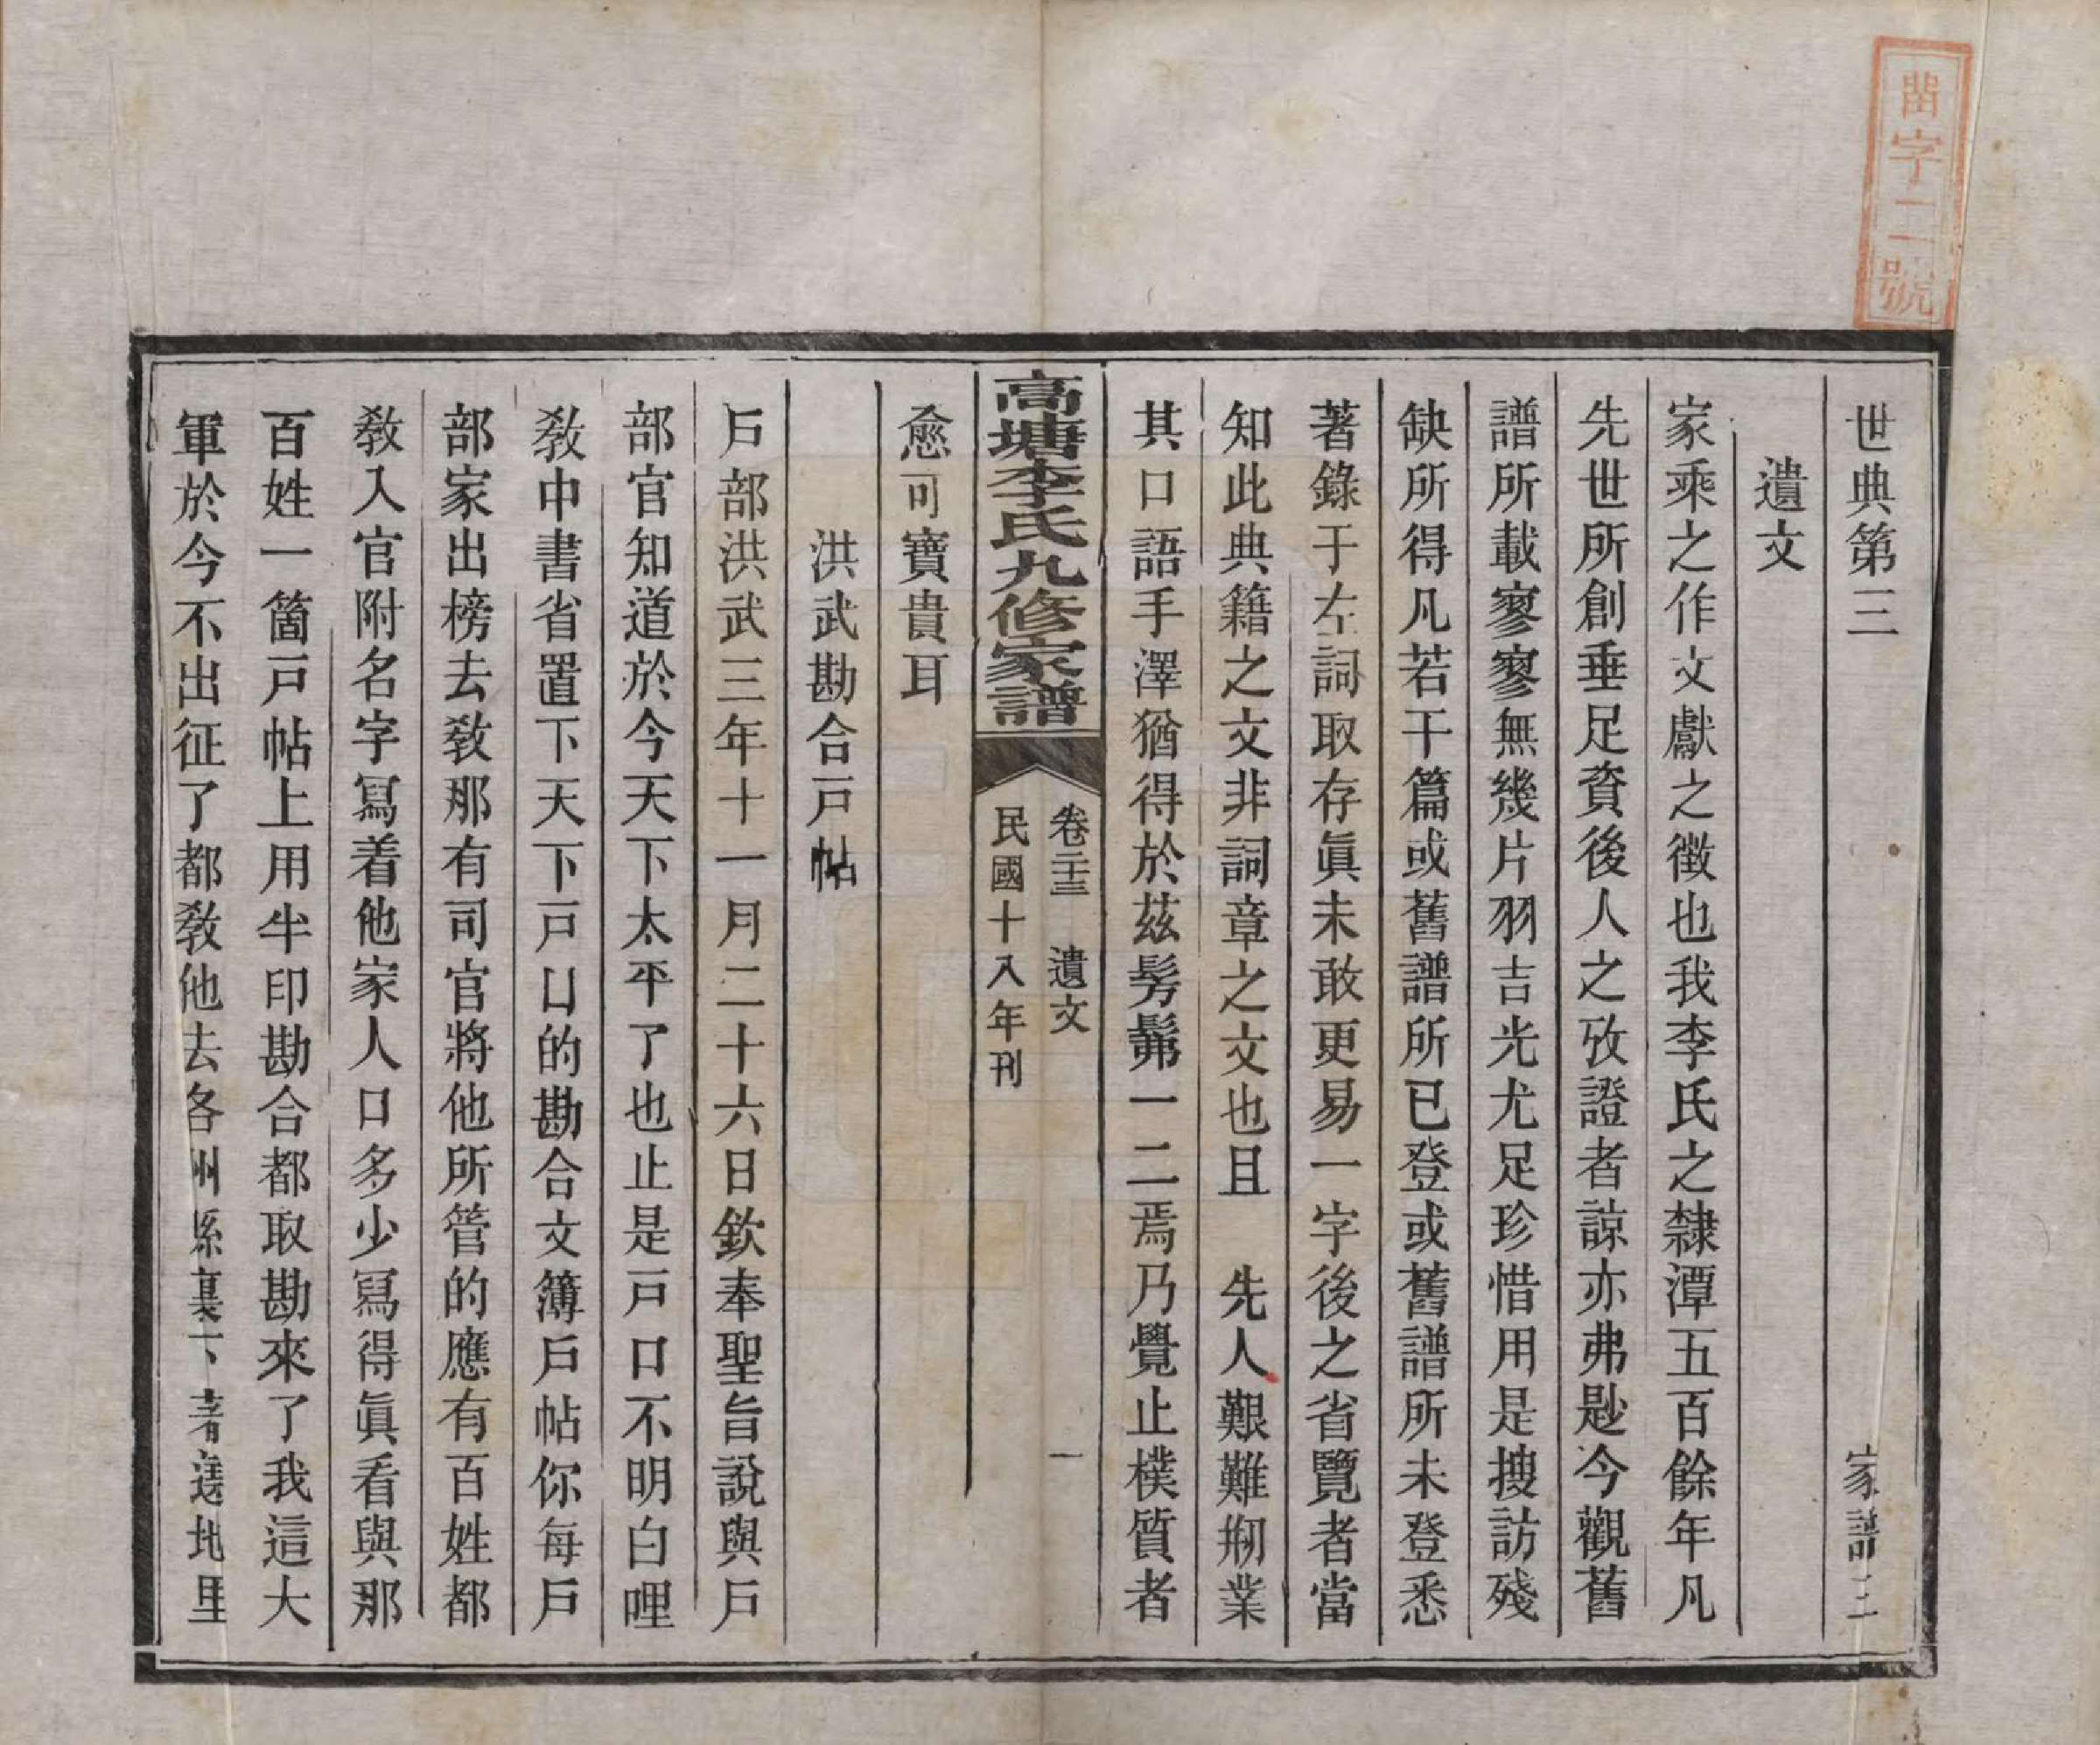 字二號
世典第三　家譜三
遺文
家乘之作文獻之徵也我李氏之隸潭五百餘年凡
先世所創垂足資後人之攷證者諒亦弗尟今觀舊
譜所載寥寥無幾片羽吉光尤足珍惜用是搜訪殘
缺所得凡若干篇或舊譜所已登或舊譜所未登悉
著錄于左詞取存眞未敢更易一字後之省覽者當
知此典籍之文非詞章之文也且　先人艱難剏業
其口語手澤猶得於茲髣髴一二焉乃覺止樸質者
高塘李氏九修家譜
卷二十三　遺文　一
民國十八年刊
愈可寶貴耳
洪武勘合戸帖
戸部洪武三年十一月二十六日欽奉聖旨說與戸
部官知道於今天下太平了也止是戸口不明白哩
敎中書省置下天下戸口的勘合文簿戸帖你每戸
部家出榜去敎那有司官將他所管的應有百姓都
敎入官附名字寫着他家人口多少寫得眞看與那
百姓一箇戸帖上用半印勘合都取勘來了我這大
軍於今不出征了都敎他去各州縣裏下著遶地里